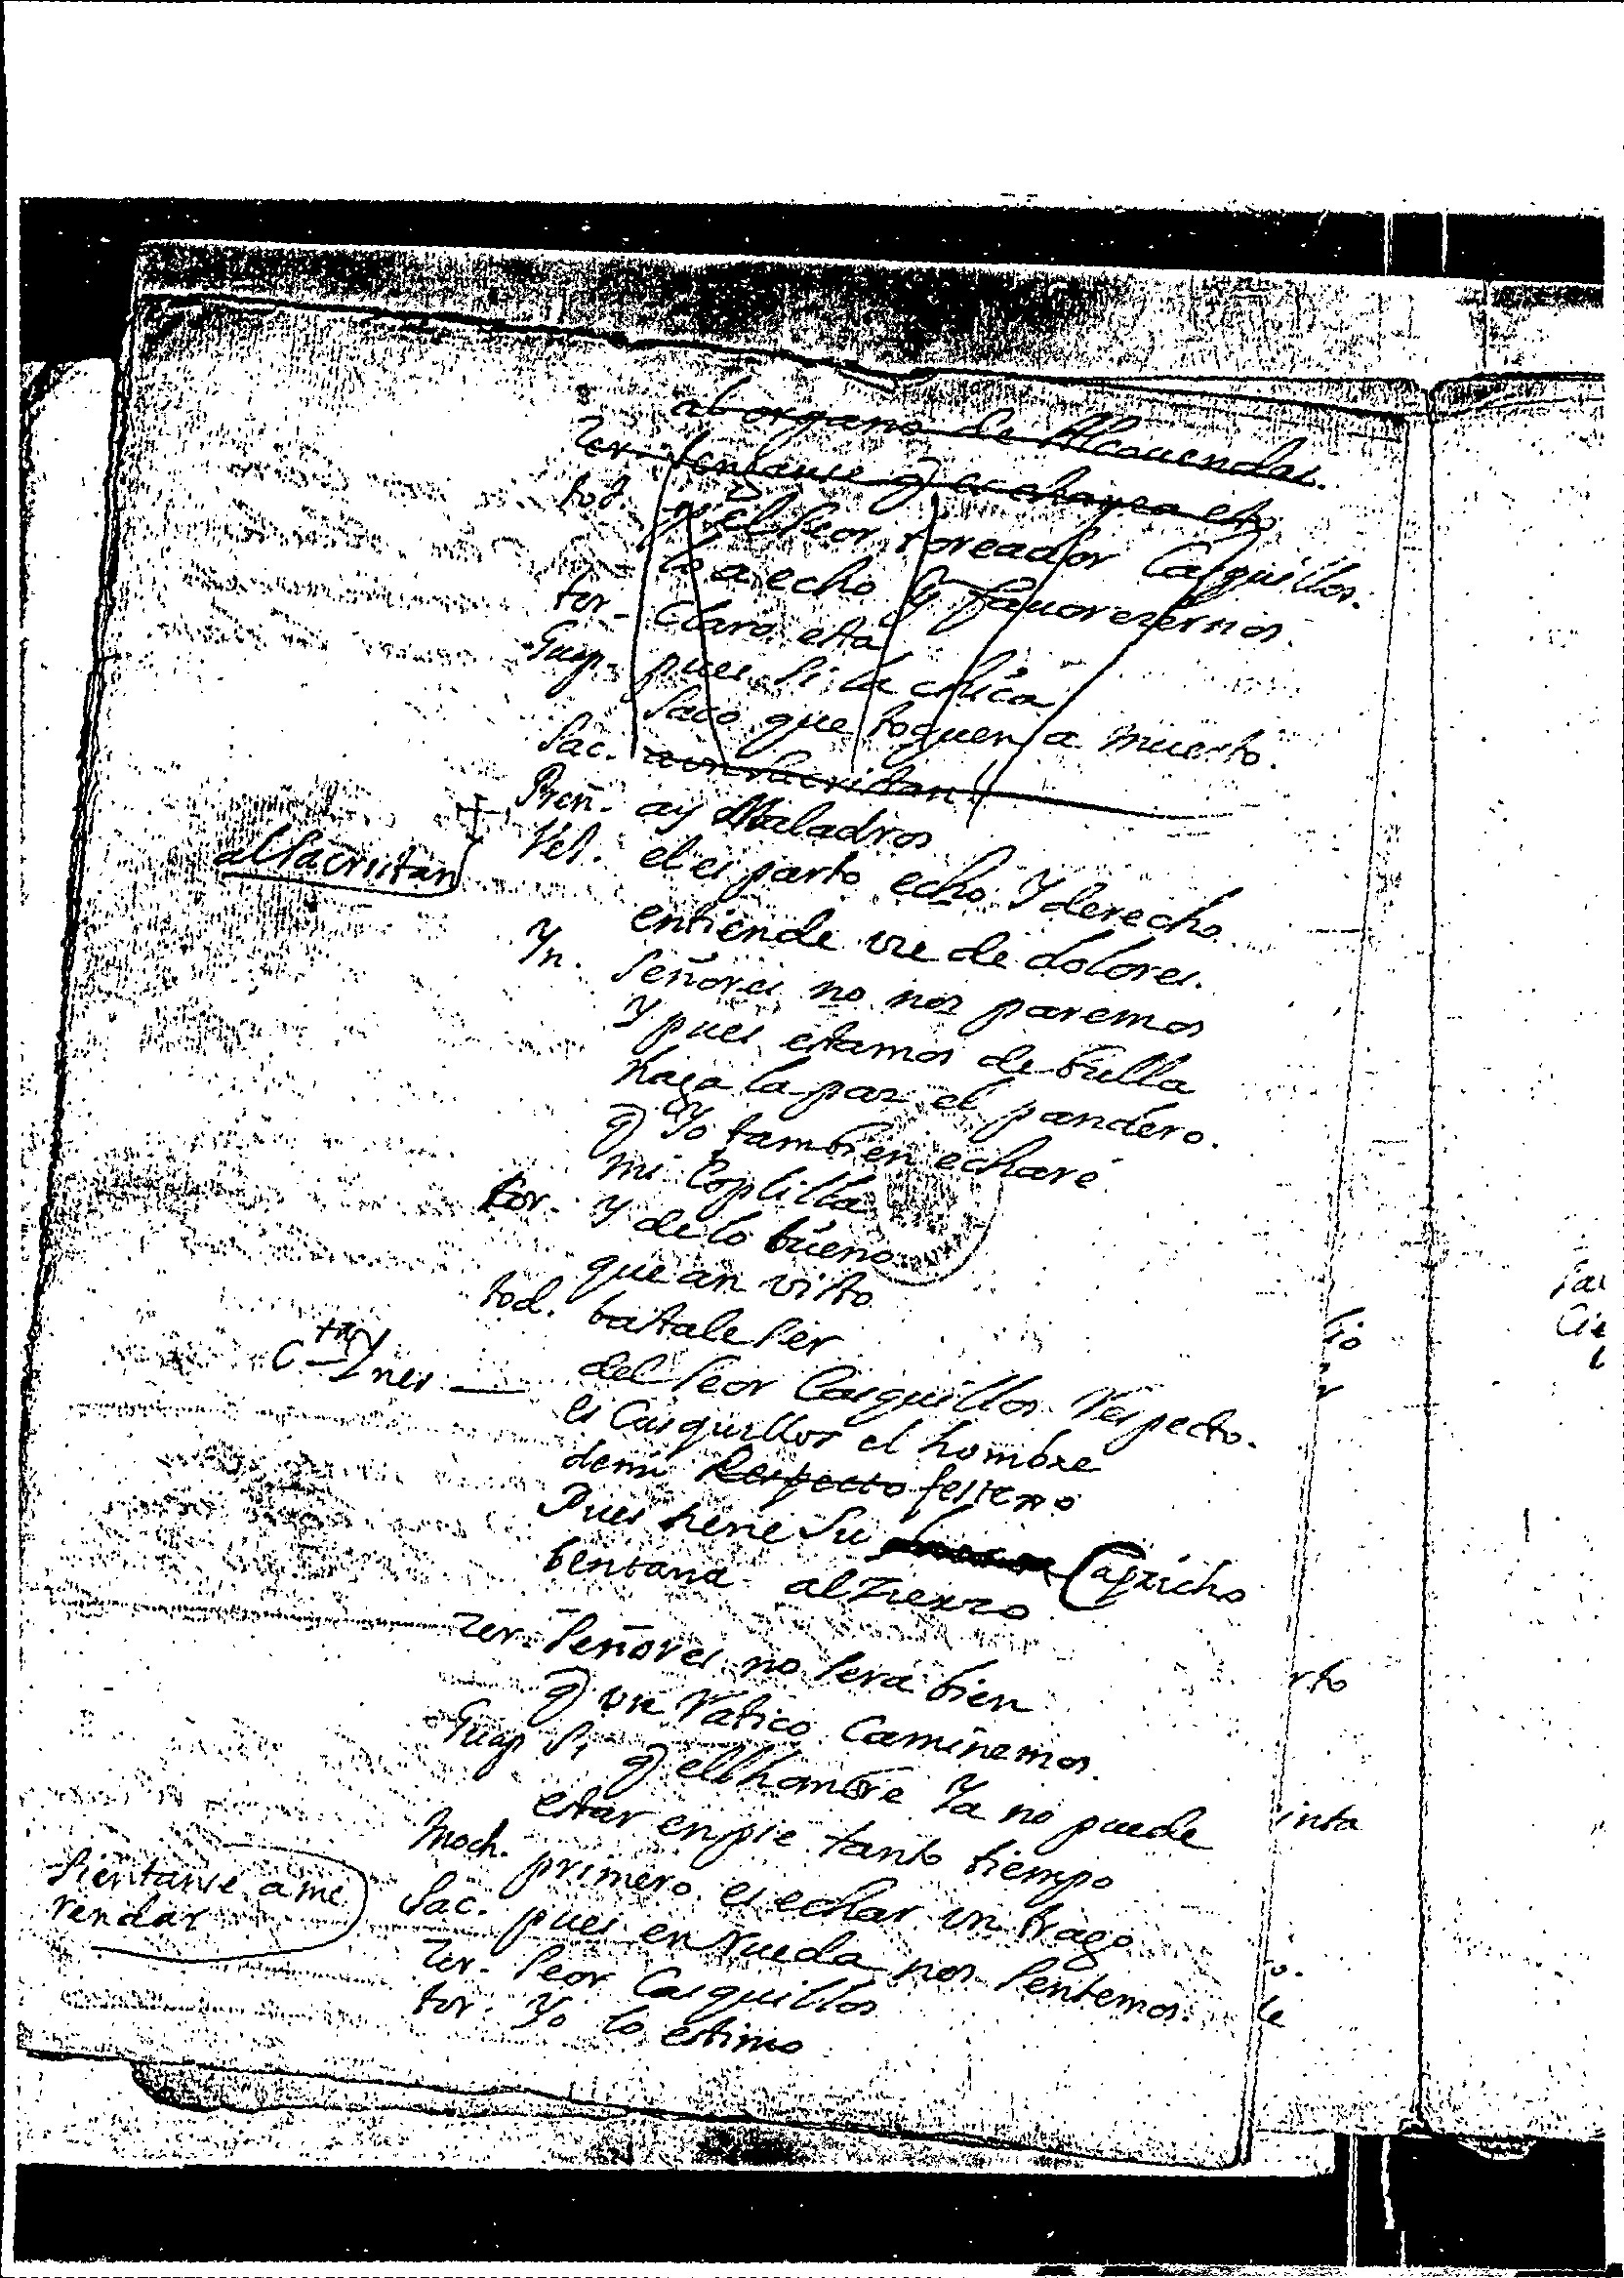 al organo de Alcouendas.
Zer. sentause q es chanza esto
tod. q el seor toreador Casquillos.
lo a echo Y fauorezernos.
tor. Claro esta
Guap. pues si la chica
saco que toquen a muerto.
Sac. a un sacristan!
Pren. ay Maladros
al sacristan
Vel. el es parto echo Y derecho
entiende vse de dolores.
Yn. señores no nos paremos
Y pues estamos de bulla
haga la paz el pandero.
q Yo tambien echaré
mi Coplilla
tor. Y de lo bueno
que an visto
tod. bastale ser
del seor Casquillos respecto.
Ctay Ynes es Casquillos el hombre
demi Respecto festexo
Pues tiene su Capricho
bentana al zierzo
Zer. Señores no sera bien
q vn ratico Caminemos.
Guap. Si q ell hombre Ya no puede
estar en pie tanto tiempo
Moch. primero es echar un trago
sientanse a me
rendar
Sac. pues en rueda nos sentemos.
Zer. seor Casquillos
tor. Yo lo estimo
lio
rto
inta
o.
le